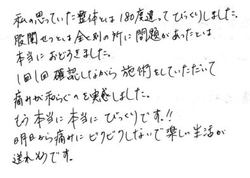 私の思っていた整体とは180度違ってびっくりしました。
股関せつとは全く別の所に問題があったとは
本当におどろきました。
1回1回確認しながら施術をしていただいて
痛みが和らぐのを実感しました。
もう本当に本当にびっくりです!!
明日から痛みにビクビクしないで楽しい生活が
送れそうです。